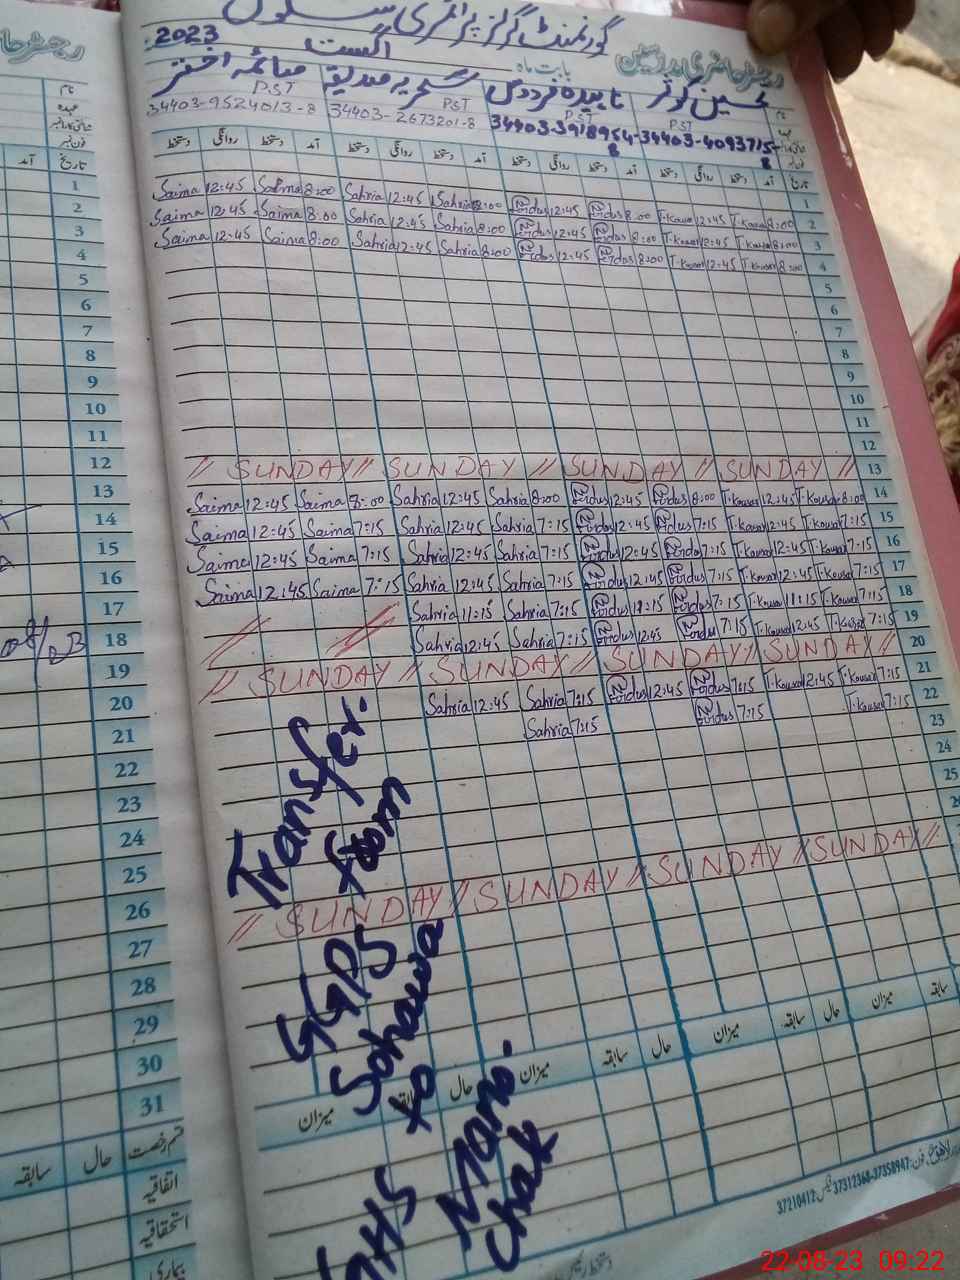 گورنمنٹ گرلز پرائمری سکول
رجسٹر حاضری مدرسین
بابت ماہ
اگست
2023
نام
تحسین کوثر
تابیدہ فردوس
سحریہ صدیقہ
صائمہ اختر
PST
PST
PST
P.ST
34403-4093715-8
34403-3918954-8
34403-2673201-8
34403-9524013-8
تاریخ آمد دستخط روانگی دستخط آمد دستخط روانگی دستخط آمد دستخط روانگی دستخط آمد دستخط روانگی دستخط
1 Saima 12:45 Saima 8:00 Sahria 12:45 Sahria 8:00 Firdus 12:45 Firdus 8:00 T.Kousar 12:45 T.Kousar 8:00 1
2 Saima 12:45 Saima 8:00 Sahria 12:45 Sahria 8:00 Firdus 12:45 Firdus 8:00 T.Kousar 12:45 T.Kousar 8:00 2
3 Saima 12:45 Saima 8:00 Sahria 12:45 Sahria 8:00 Firdus 12:45 Firdus 8:00 T.Kousar 12:45 T.Kousar 8:00 3
4 4
5 5
6 6
7 7
8 8
9 9
10 10
11 11
12 12
// SUNDAY // SUNDAY // SUNDAY // SUNDAY // 13
13 Saima 12:45 Saima 8:00 Sahria 12:45 Sahria 8:00 Firdus 12:45 Firdus 8:00 T.Kousar 12:45 T.Kousar 8:00 14
14 Saima 12:45 Saima 7:15 Sahria 12:45 Sahria 7:15 Firdus 12:45 Firdus 7:15 T.Kousar 12:45 T.Kousar 7:15 15
15 Saima 12:45 Saima 7:15 Sahria 12:45 Sahria 7:15 Firdus 12:45 Firdus 7:15 T.Kousar 12:45 T.Kousar 7:15 16
16 Saima 12:45 Saima 7:15 Sahria 12:45 Sahria 7:15 Firdus 12:45 Firdus 7:15 T.Kousar 12:45 T.Kousar 7:15 17
17 Sahria 11:15 Sahria 7:15 Firdus 11:15 Firdus 7:15 T.Kousar 11:15 T.Kousar 7:15 18
18 Sahria 12:45 Sahria 7:15 Firdus 12:45 Firdus 7:15 T.Kousar 12:45 T.Kousar 7:15 19
19 // SUNDAY // SUNDAY // SUNDAY // SUNDAY // 20
20 Sahria 12:45 Sahria 7:15 Firdus 12:45 Firdus 7:15 T.Kousar 12:45 T.Kousar 7:15 21
21 Sahria 7:15 Firdus 7:15 T.Kousar 7:15 22
22 23
23 24
24 25
25
26 // SUNDAY // SUNDAY // SUNDAY // SUNDAY //
27
28
29
30
31
Transfer.
from
GGPS
Sohawa
to
GHS
Mano.
Chak
قسم رخصت حال سابقہ
میزان سابقہ حال میزان سابقہ حال میزان سابقہ حال میزان سابقہ
اتفاقیہ
استحقاقیہ
بیماری
37210412 37312368-37358947
22-08-23 09:22